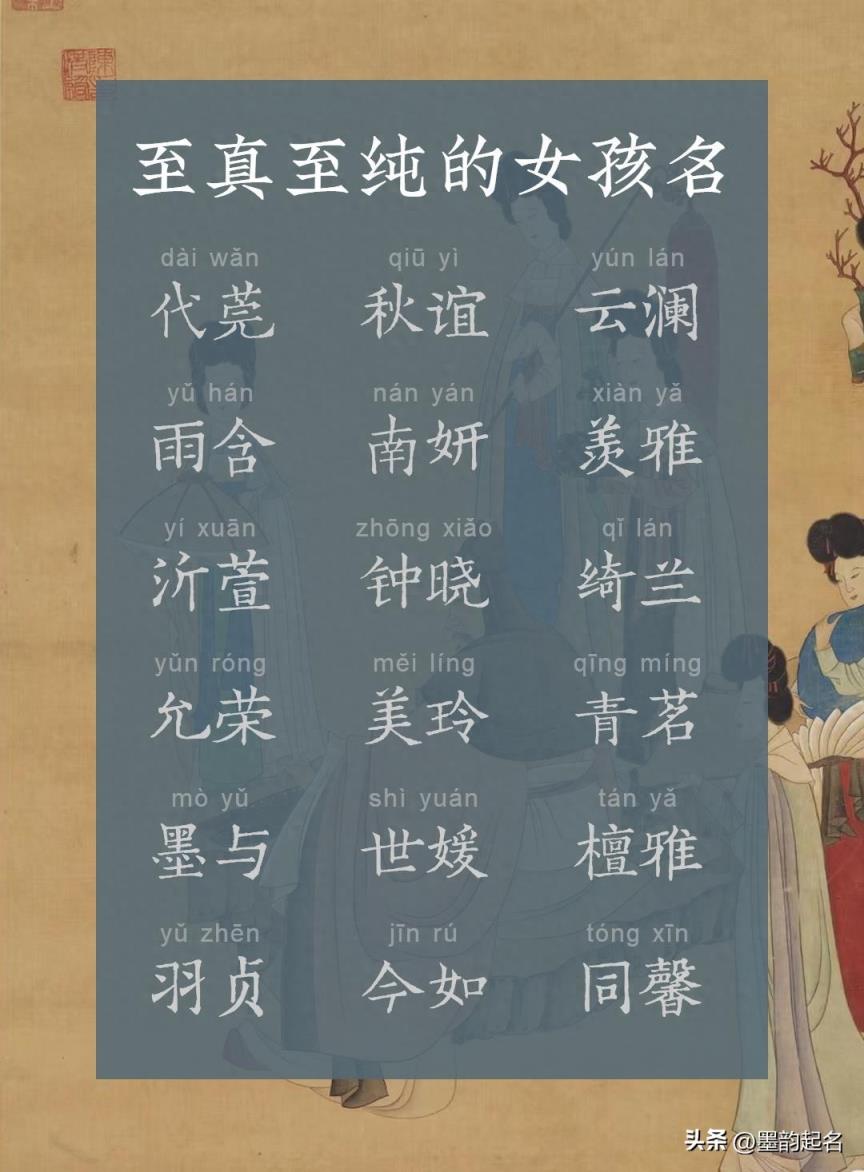 至真至纯的女孩名
dài wǎn qiū yì yún lán
代莞 秋谊 云澜
yǔ hán nán yán xiàn yǎ
雨含 南妍 羡雅
yí xuān zhōng xiǎo qǐ lán
沂萱 钟晓 绮兰
yǔn róng měi líng qīng míng
允荣 美玲 青茗
mò yǔ shì yuán tán yǎ
墨与 世媛 檀雅
yǔ zhēn jīn rú tóng xīn
羽贞 今如 同馨
头条 @墨韵起名